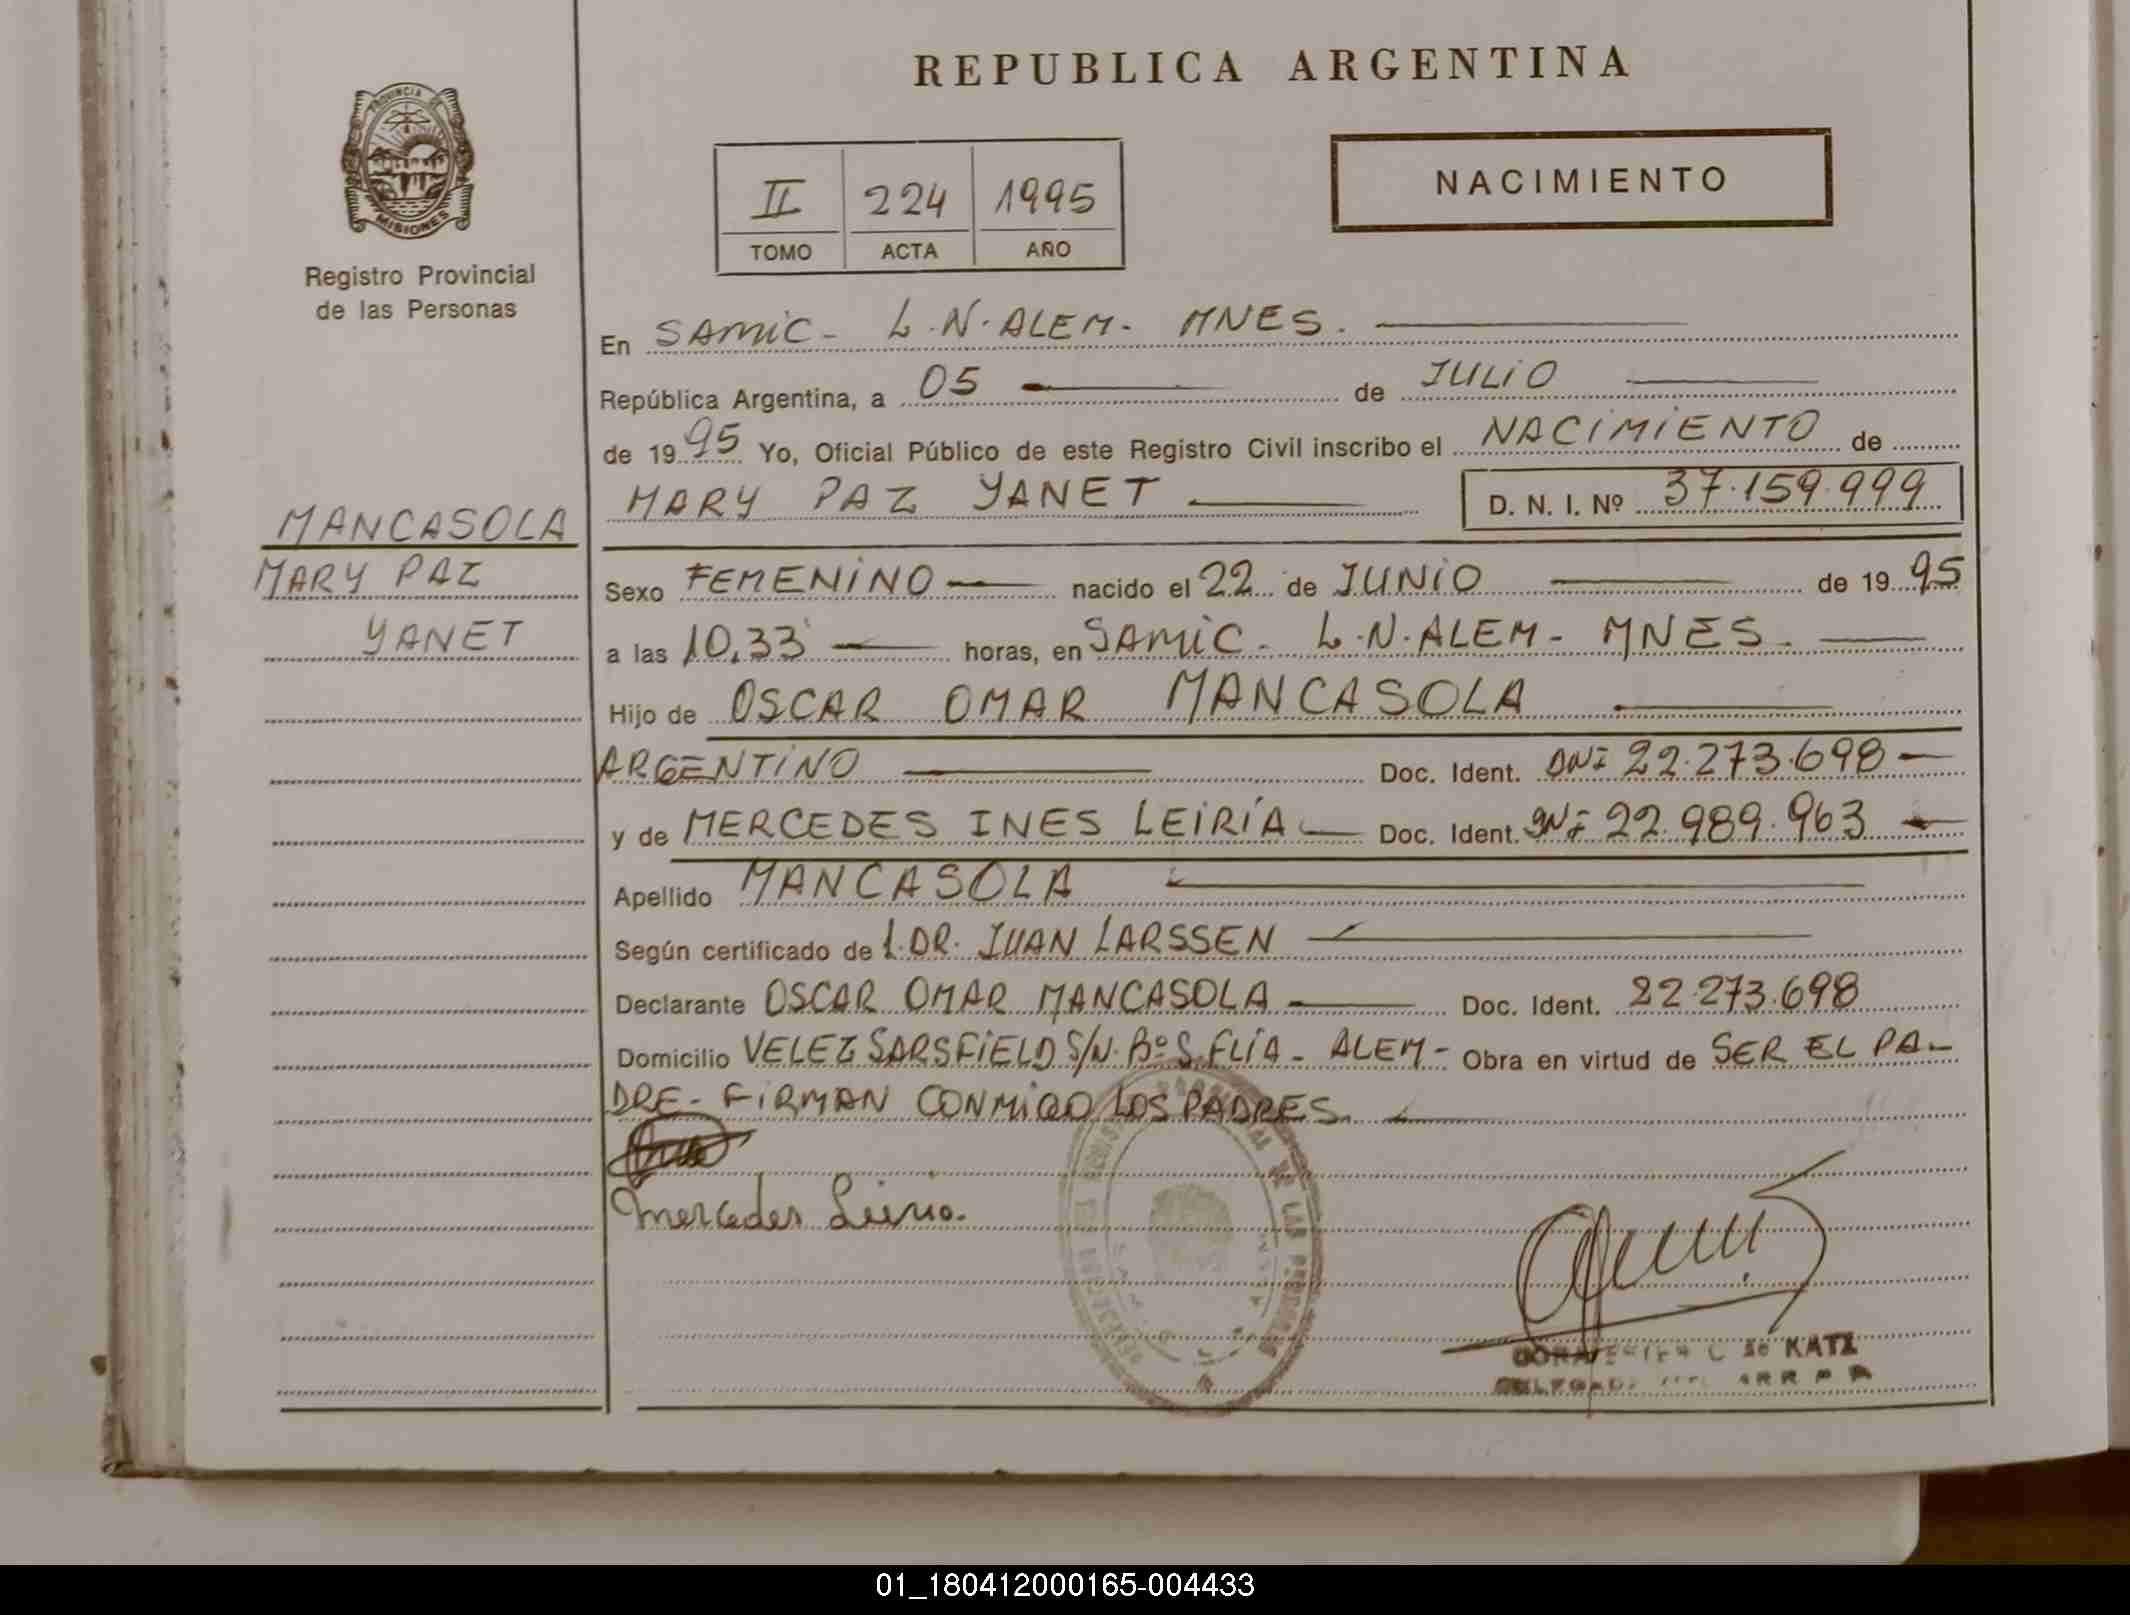 REPUBLICA ARGENTINA
PROVINCIA DE
MISIONES
Registro Provincial
de las Personas
NACIMIENTO
II 224 1995
TOMO ACTA AÑO
En SAMIC - L.N. ALEM - MNES.
República Argentina, a 05 de JULIO
de 1995 Yo, Oficial Público de este Registro Civil inscribo el NACIMIENTO de
MARY PAZ YANET D. N. I. Nº 37.159.999
MANCASOLA
MARY PAZ
YANET
Sexo FEMENINO nacido el 22 de JUNIO de 1995
a las 10,33 horas, en SAMIC - L.N. ALEM - MNES.
Hijo de OSCAR OMAR MANCASOLA
ARGENTINO Doc. Ident. DNI 22.273.698
y de MERCEDES INES LEIRÍA Doc. Ident. DNI 22.989.963
Apellido MANCASOLA
Según certificado de L. DR. JUAN LARSSEN
Declarante OSCAR OMAR MANCASOLA Doc. Ident. 22.273.698
Domicilio VELEZ SARSFIELD S/N. Bº S. FLIA - ALEM - Obra en virtud de SER EL PA-
DRE - FIRMAN CONMIGO LOS PADRES.
Mercedes Leiria.
DE LAS PERSONAS
KATZ
01_180412000165-004433